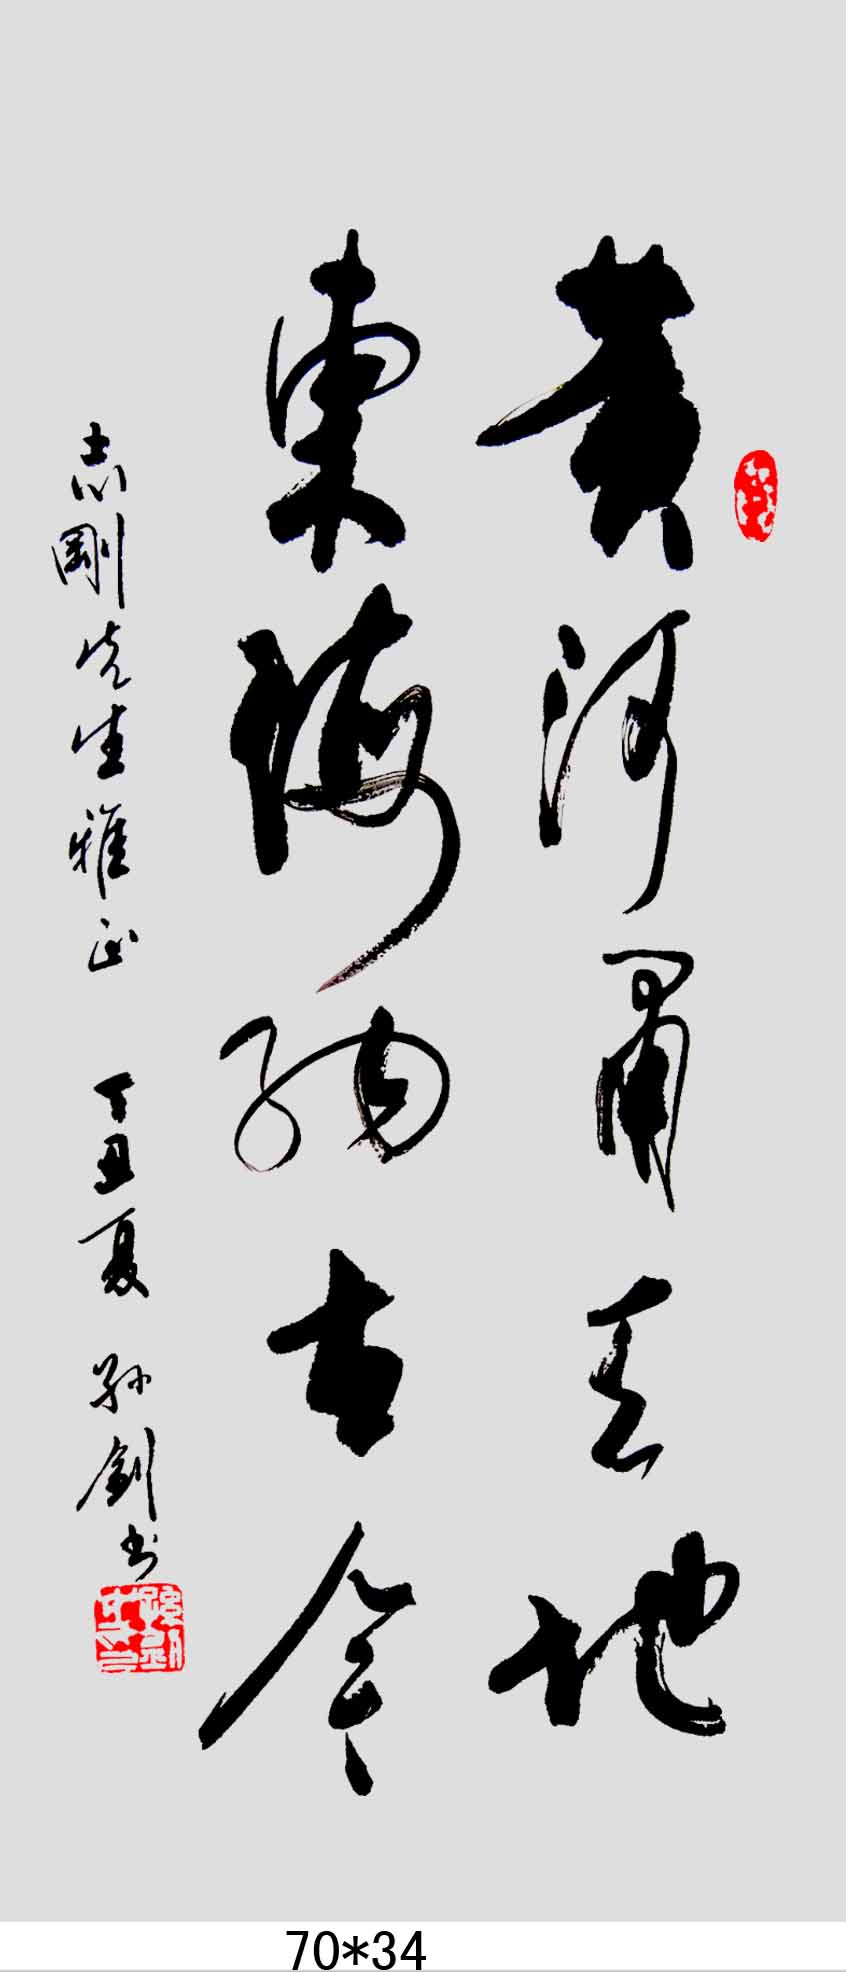 黄河天地
東海納古今
志剛先生雅正 丁丑夏 孙釗书
70*34